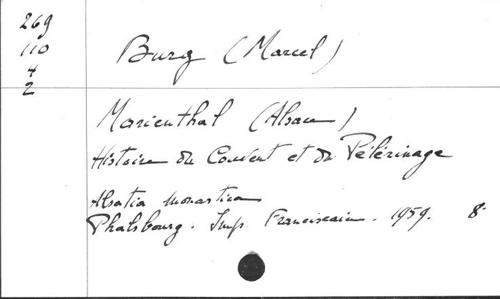 269
110
4
2
Burg (Marcel)
Marienthal (Alsace)
Histoire du Couvent et du Pélérinage
Alsatia monastica
Phalsbourg. Imp. Franciscaine. 1959. 8º